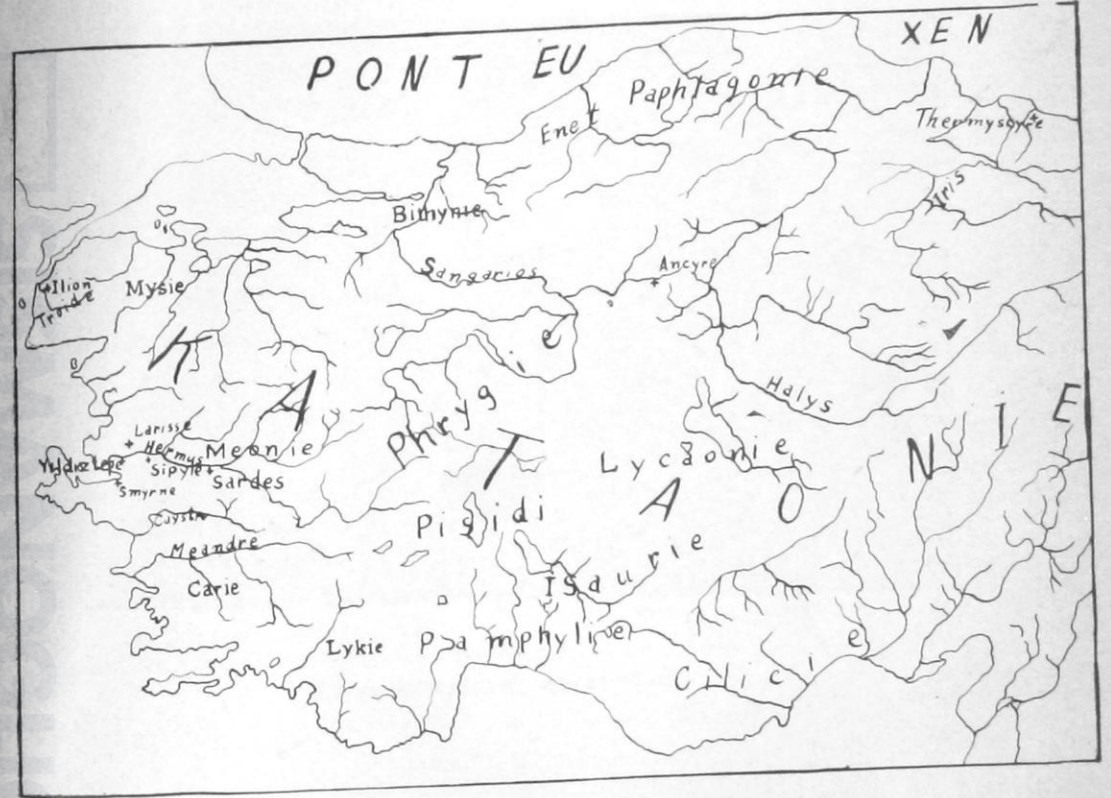 PONT EU XEN
Paphlagonie
Enet
Thermyscyre
Iris
Bithynie
Sangarios
Ancyre
Ilion
Troide
Mysie
KATAONIE
Phrygie
Halys
Larisse
Hermus
Meonie
Yyldizlepe
Sipyle
Sardes
Smyrne
Lycaonie
Caystr
Pisidi
Meandre
Isaurie
Carie
Lykie
Pamphylie
Cilicie